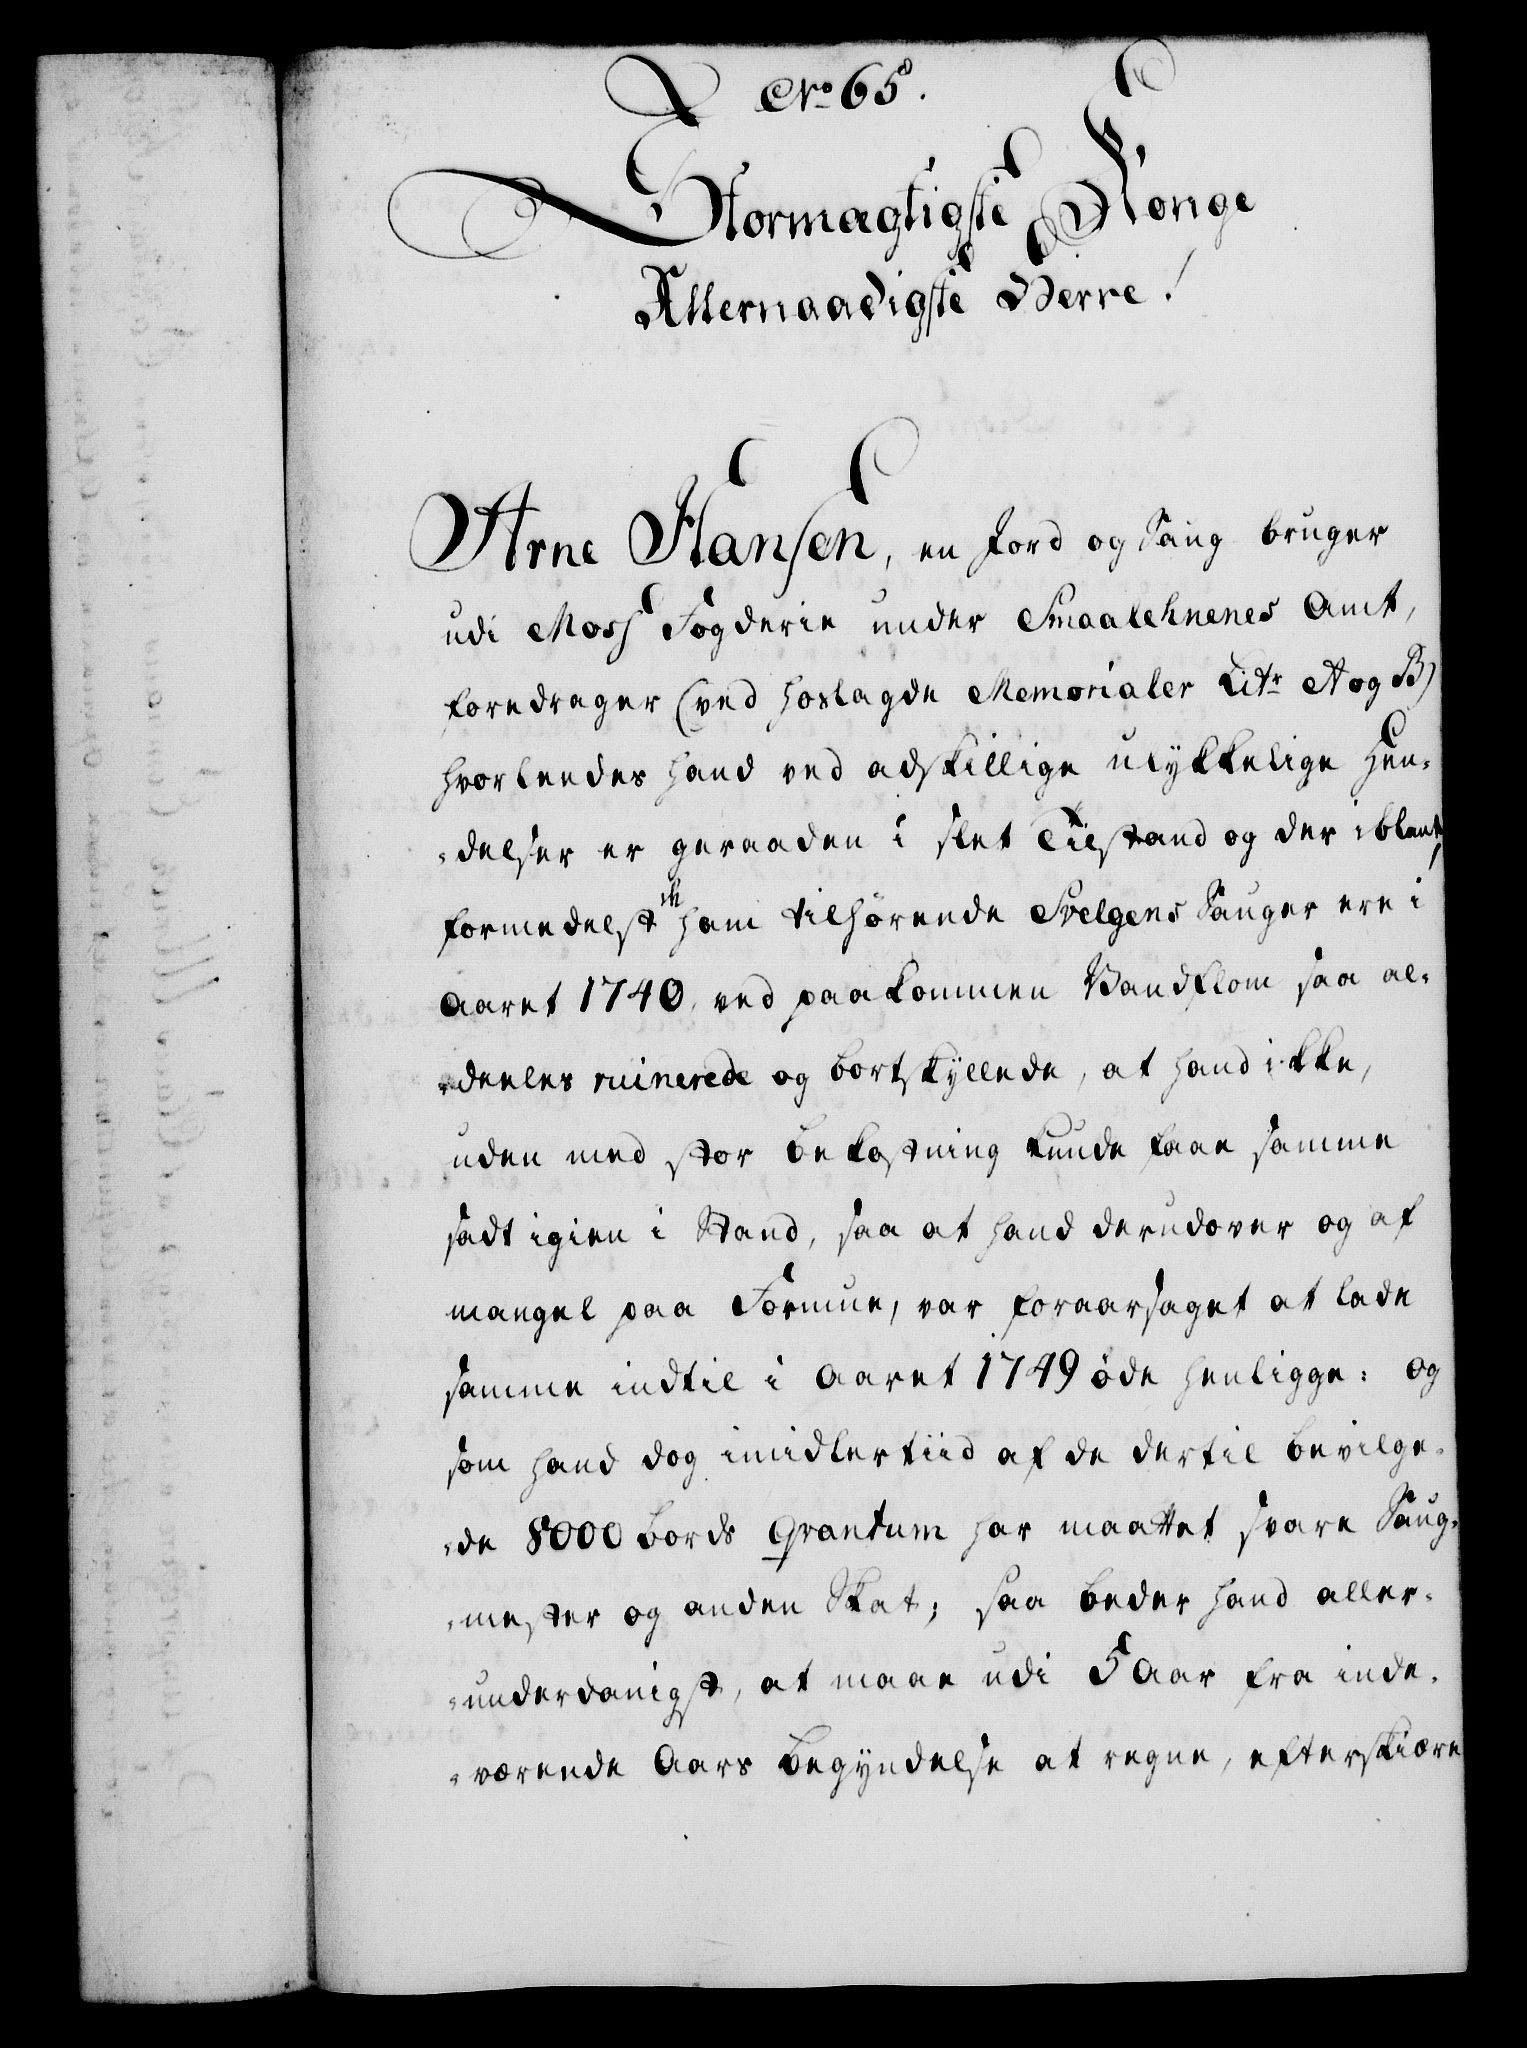 No 65.
Stormægtigste Konge
Allernaadigste Herre!
Arne Hansen, en Jord og Saug bruger
udi Moss Fogderie under Smaalehnenes Amt,
foredrager (ved hoslagde Memorialer Litr A og B)
hvorleedes hand ved adskillige ulykkelige Hen-
-delser er geraaden i slet Tilstand og der iblant,
formedelst de ham tilhørende Svelgens Sauger ere i
Aaret 1740, ved paakommen Vandflom saa al-
-deeles ruinerede og bortskyllede, at hand ikke,
uden med stor bekostning kunde faae samme
sadt igien i Stand, saa at hand derudover og af
mangel paa Formue, var foraarsaget at lade
samme indtil i Aaret 1749 øde henligge: og
som hand dog imidlertiid af de dertil bevilge-
-de 8000 bords Qvantum har maattet svare Saug-
-mester og anden Skat; saa beder hand aller-
-underdanigst, at maae udi 5 Aar fra inde-
-værende Aars Begyndelse at regne, efterskiære